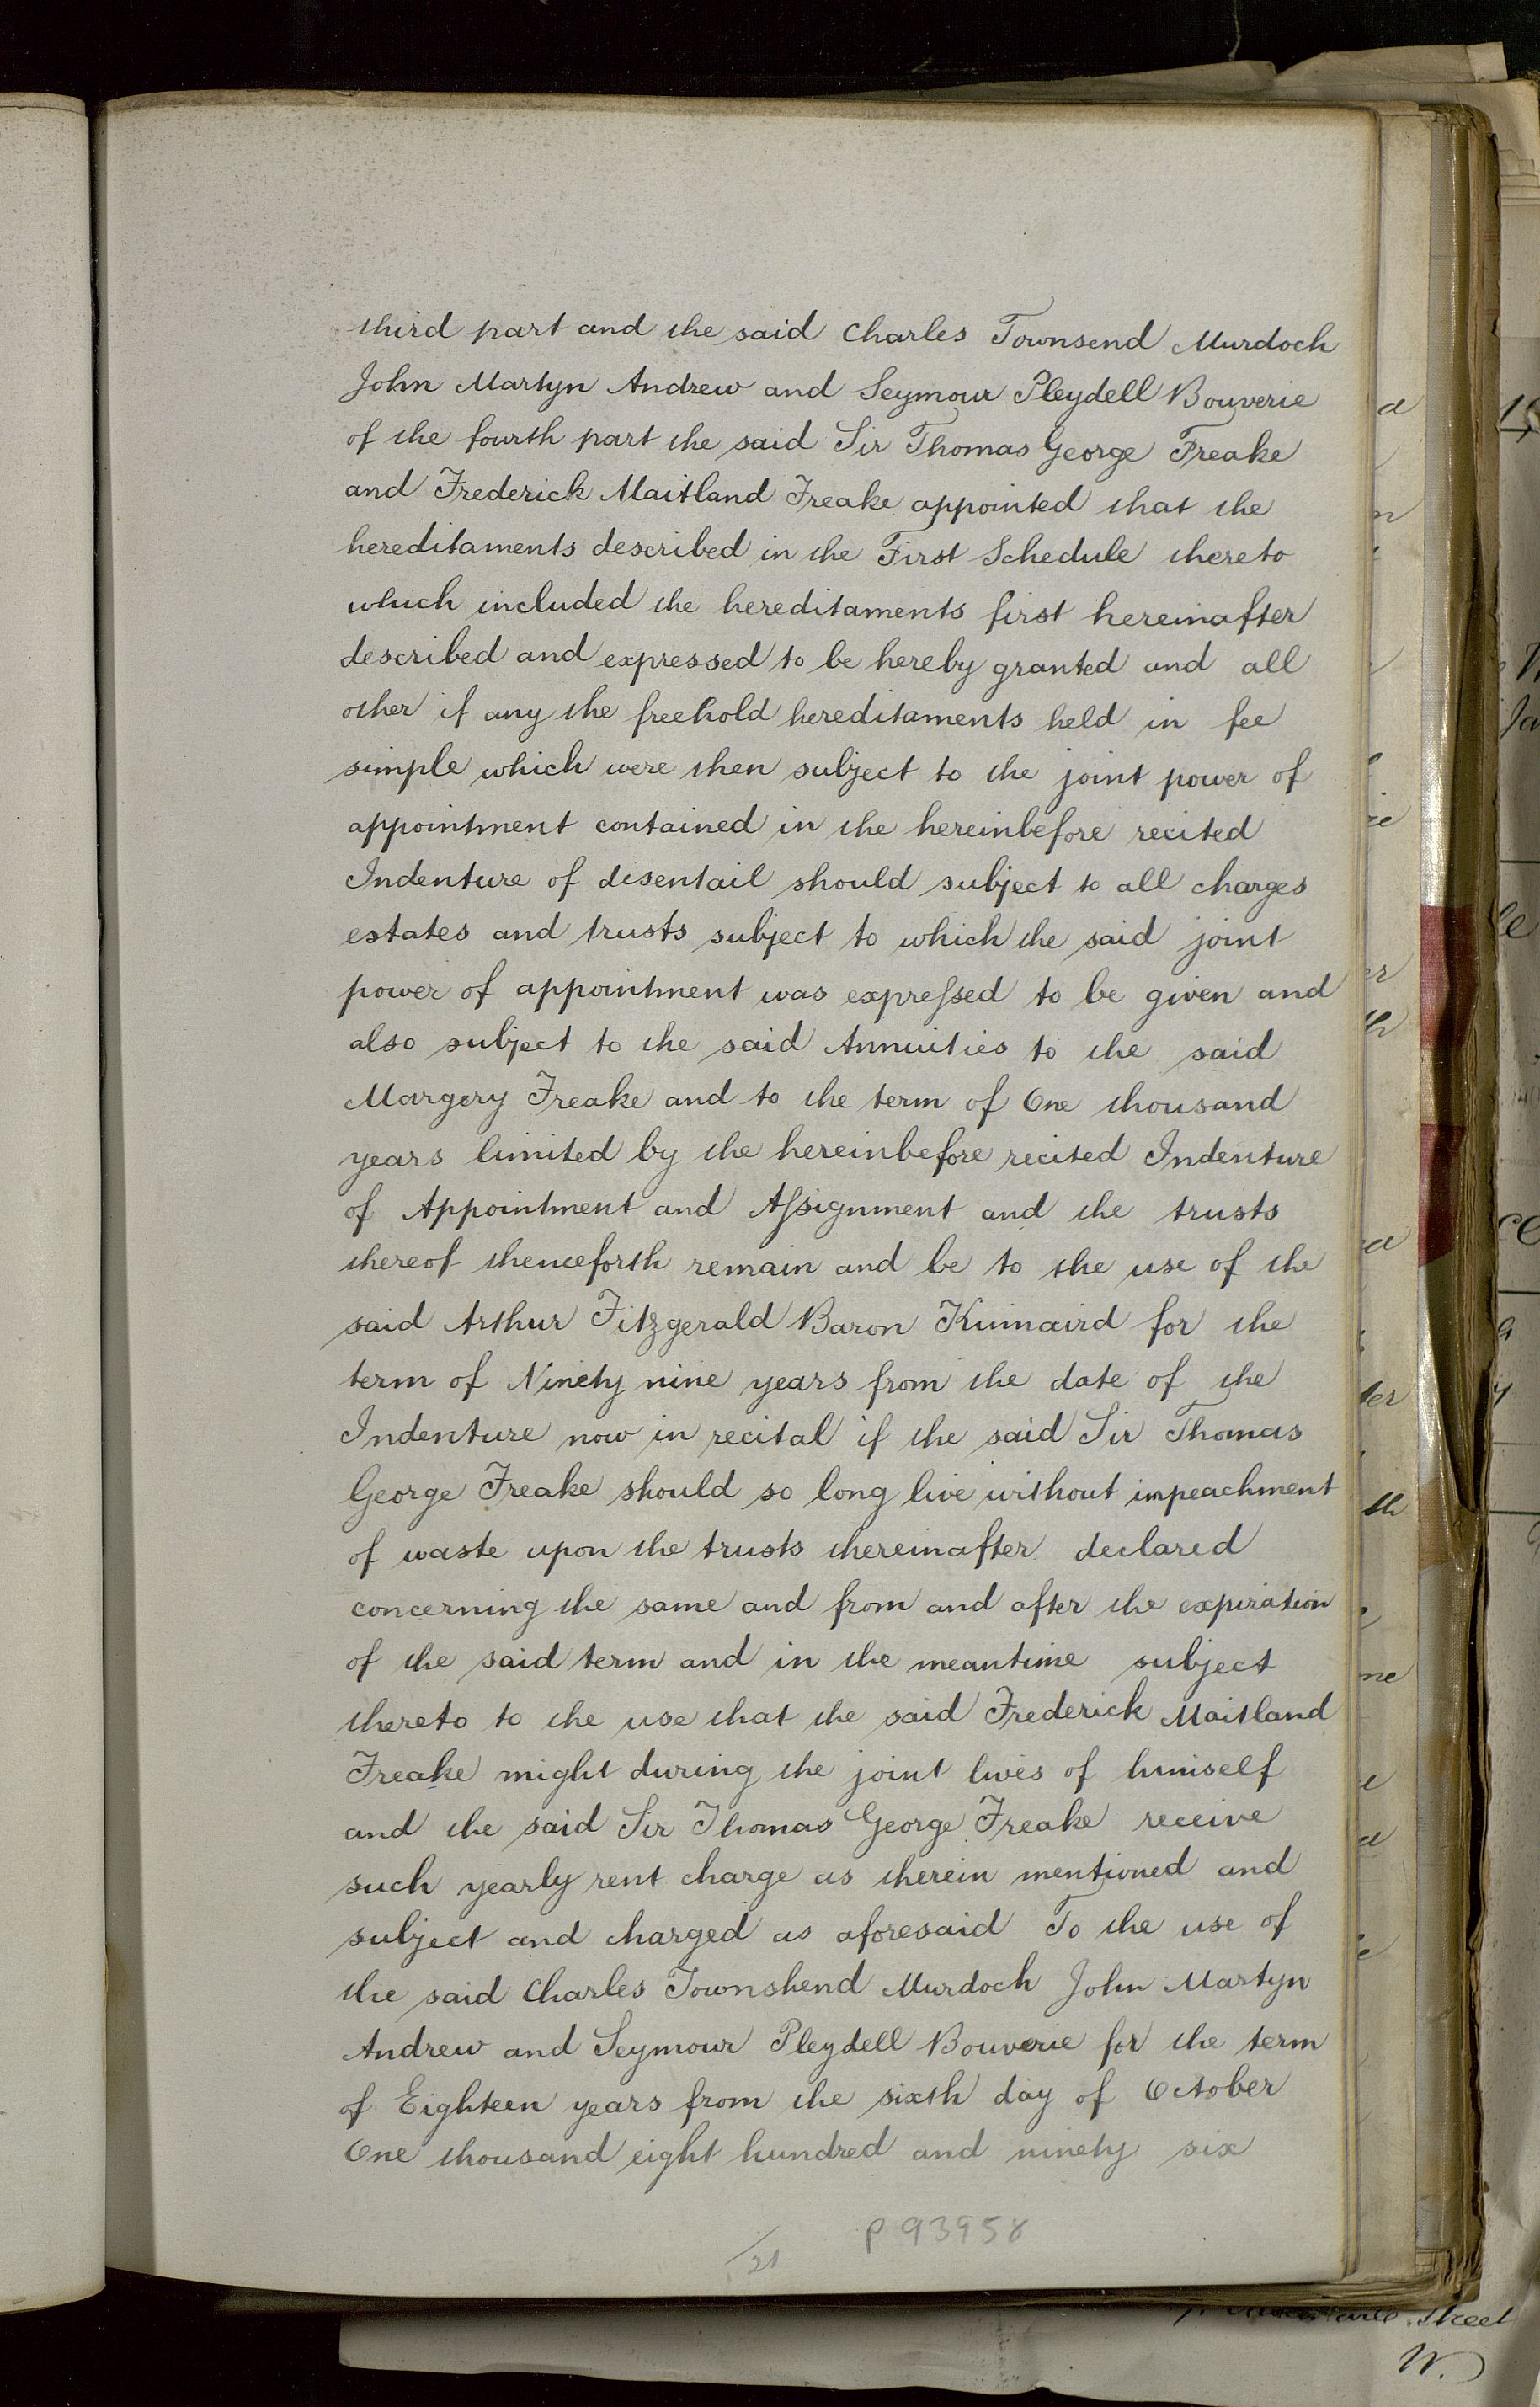 third part and the said Charles Townsend Murdoch
John Martyn Andrew and Seymour Pleydell Bouverie
of the fourth part the said Sir Thomas George Freake
and Frederick Maitland Freake appointed that the
hereditaments described in the First Schedule thereto
which included the hereditaments first hereinafter
described and expressed to be hereby granted and all
other if any the freehold hereditaments held in fee
simple which were then subject to the joint power of
appointment contained in the hereinbefore recited
Indenture of disentail should subject to all charges
estates and trusts subject to which the said joint
power of appointment was expreſsed to be given and
also subject to the said Annuities to the said
Margery Freake and to the term of One thousand
years limited by the hereinbefore recited Indenture
of Appointment and Aſsignment and the trusts
thereof thenceforth remain and be to the use of the
said Arthur Fitzgerald Baron Kinnaird for the
term of Ninety nine years from the date of the
Indenture now in recital if the said Sir Thomas
George Freake should so long live without impeachment
of waste upon the trusts thereinafter declared
concerning the same and from and after the expiration
of the said term and in the meantime subject
thereto to the use that the said Frederick Maitland
Freake might during the joint lives of himself
and the said Sir Thomas George Freake receive
such yearly rent charge as therein mentioned and
subject and charged as aforesaid To the use of
the said Charles Townshend Murdoch John Martyn
Andrew and Seymour Pleydell Bouverie for the term
of Eighteen years from the sixth day of October
One thousand eight hundred and ninety six
P 93958
21
Street
W.